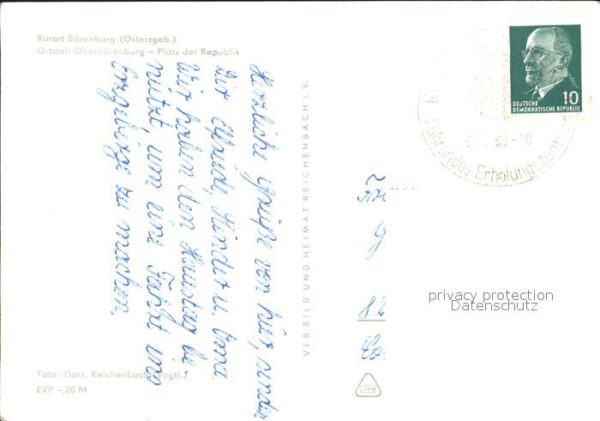 Kurort Bärenburg (Osterzgeb.)
Ortsteil Oberbärenburg – Platz der Republik
Herzliche Grüße von hier, senden
Dir Kinder u. Oma.
Wir haben den Haustag be
nützt, um eine Fahrt ins
Erzgebirge zu machen.
VEB BILD UND HEIMAT REICHENBACH i. V.
Foto: Darr, Reichenbach (Vogtl.)
EVP –,20 M
DEUTSCHE
DEMOKRATISCHE REPUBLIK
10
privacy protection
Datenschutz